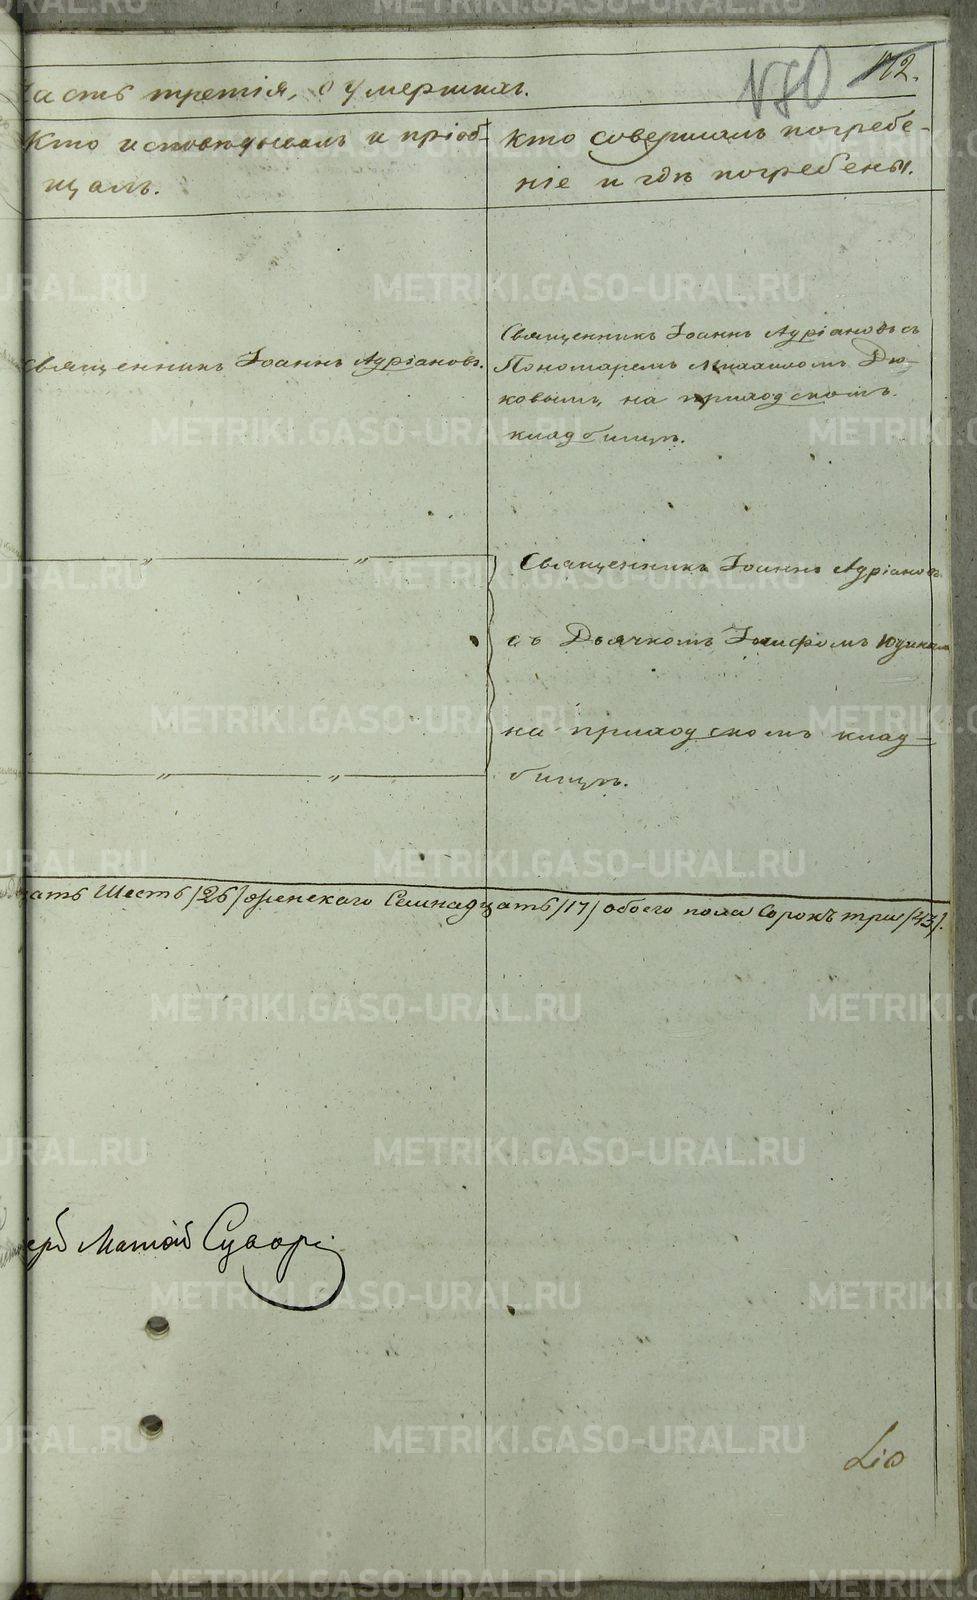 172.
Часть третія, о умершихъ.
Кто исповѣдывалъ и пріоб-
щалъ.
Кто совершалъ погребе-
ніе и гдѣ погребены.
Священникъ Іоаннъ Адріановъ.
Священникъ Іоаннъ Адріановъ съ
Пономаремъ Михаиломъ Дю-
ковымъ, на приходскомъ
кладбищѣ.
Священникъ Іоаннъ Адріановъ
съ Дьячкомъ Іосифомъ
на приходскомъ клад-
бищѣ.
цать Шесть /26/ женскаго Семнадцать /17/ обоего пола Сорокъ три /43/.
METRIKI.GASO-URAL.RU